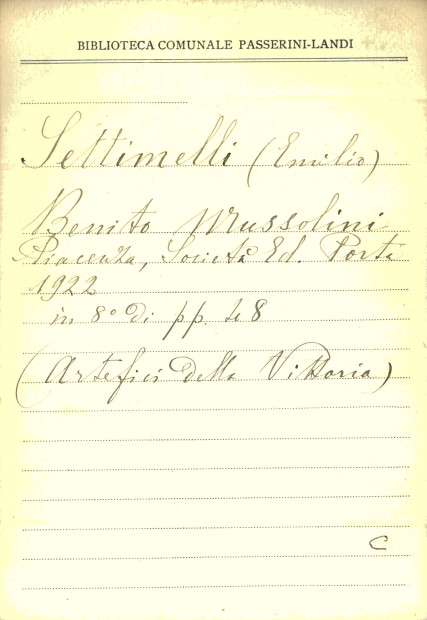 BIBLIOTECA COMUNALE PASSERINI-LANDI
Settimelli (Emilio)
Benito Mussolini
Piacenza, Società Ed. Porta
1922
in 8° di pp. 48
(Artefici della Vittoria)
C